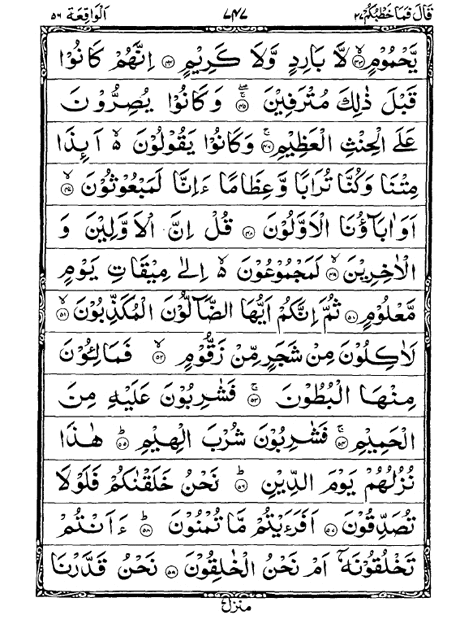 قَالَ فَمَا خَطْبُكُمْ ٢٧ ٧٤٧ اَلْوَاقِعَة ٥٦
يَّحْمُوْمٍ ۙ‏﴿۴۳﴾ لَّا بَارِدٍ وَّلَا كَرِيْمٍ ﴿۴۴﴾ اِنَّهُمْ كَانُوْا
قَبْلَ ذٰلِكَ مُتْرَفِيْنَ ۚۖ ﴿۴۵﴾ وَكَانُوْا يُصِرُّوْنَ
عَلَى الْحِنْثِ الْعَظِيْمِ ۚ ﴿۴۶﴾ وَكَانُوْا يَقُوْلُوْنَ ۙ اَئِذَا
مِتْنَا وَكُنَّا تُرَابًا وَّعِظَامًا ءَاِنَّا لَمَبْعُوْثُوْنَ ۙ ﴿۴۷﴾
اَوَاٰبَآؤُنَا الْاَوَّلُوْنَ ﴿۴۸﴾ قُلْ اِنَّ الْاَوَّلِيْنَ وَ
الْاٰخِرِيْنَ ۙ ﴿۴۹﴾ لَمَجْمُوْعُوْنَ ۙ اِلٰى مِيْقَاتِ يَوْمٍ
مَّعْلُوْمٍ ﴿۵۰﴾ ثُمَّ اِنَّكُمْ اَيُّهَا الضَّآلُّوْنَ الْمُكَذِّبُوْنَ ۙ ﴿۵۱﴾
لَاٰكِلُوْنَ مِنْ شَجَرٍ مِّنْ زَقُّوْمٍ ۙ ﴿۵۲﴾ فَمَالِئُوْنَ
مِنْهَا الْبُطُوْنَ ۚ ﴿۵۳﴾ فَشٰرِبُوْنَ عَلَيْهِ مِنَ
الْحَمِيْمِ ۚ ﴿۵۴﴾ فَشٰرِبُوْنَ شُرْبَ الْهِيْمِ ؕ ﴿۵۵﴾ هٰذَا
نُزُلُهُمْ يَوْمَ الدِّيْنِ ؕ ﴿۵۶﴾ نَحْنُ خَلَقْنٰكُمْ فَلَوْلَا
تُصَدِّقُوْنَ ﴿۵۷﴾ اَفَرَءَيْتُمْ مَّا تُمْنُوْنَ ؕ ﴿۵۸﴾ ءَاَنْتُمْ
تَخْلُقُوْنَهٗۤ اَمْ نَحْنُ الْخٰلِقُوْنَ ﴿۵۹﴾ نَحْنُ قَدَّرْنَا
منزل ٧